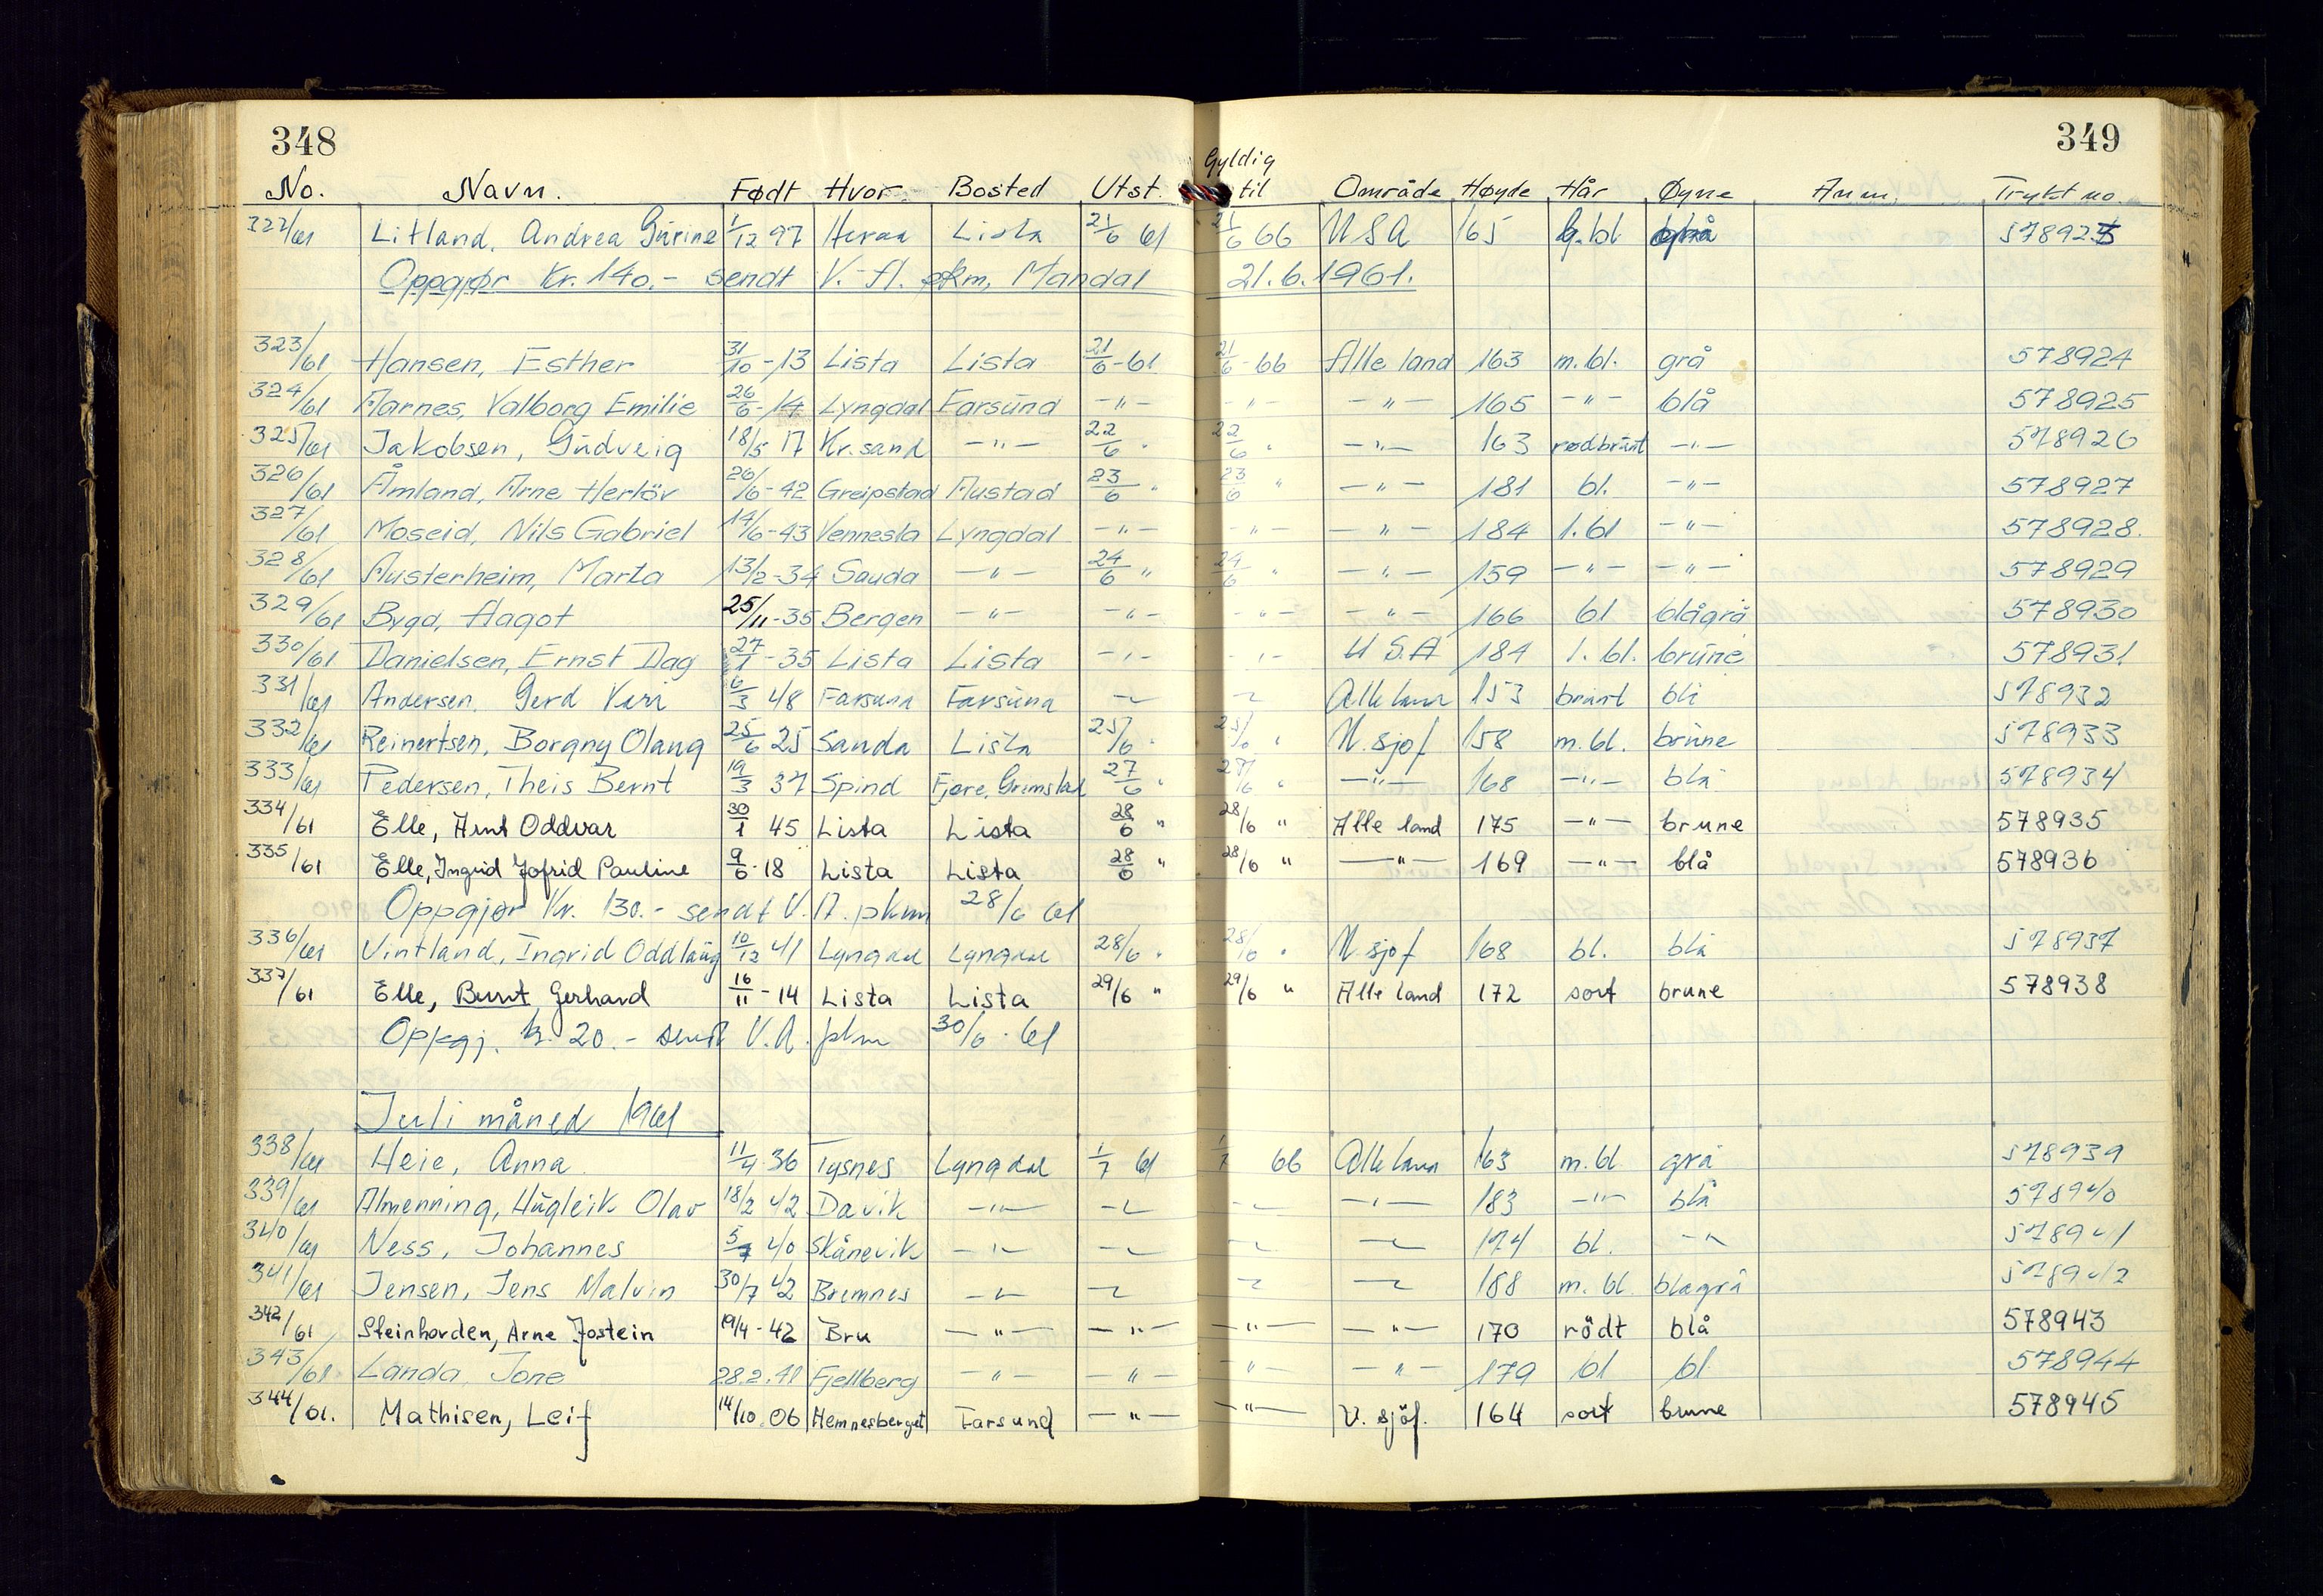 348
349
No. Navn. Født Hvor Bosted Utst. Gyldig til Område Høyde Hår Øyne Anm. Trykt no.
322/61 Litland, Andrea Gurine 1/12 97 Heraa Lista 21/6 61 21/6 66 USA 165 g.bl 578923
Oppgjør Kr. 140.- sendt V.-A. pkm, Mandal 21.6.1961.
323/61 Hansen, Esther 31/10-13 Lista Lista 21/6-61 21/6-66 Alle land 163 m.bl. grå 578924
324/61 Aarnes, Valborg Emilie 26/6-14 Lyngdal Farsund -"- -"- -"- 165 -"- blå 578925
325/61 Jakobsen, Gudveig 18/5 17 Kr.sand -"- 22/6 " 22/6 " -"- 163 rødbrunt -"- 578926
326/61 Åmland, Arne Herløv 26/6-42 Greipstad Austad 23/6 " 23/6 " -"- 181 bl. -"- 578927
327/61 Moseid, Nils Gabriel 14/6-43 Vennesla Lyngdal -"- -"- -"- 184 l.bl -"- 578928
328/61 Austerheim, Marta 13/2-34 Sauda -"- 24/6 " 24/6 " -"- 159 -"- -"- 578929
329/61 Bygd, Hagot 25/11-35 Bergen -"- -"- -"- -"- 166 bl blågrå 578930
330/61 Danielsen, Ernst Dag 27/1-35 Lista Lista -"- -"- U S.A 184 l.bl. brune 578931
331/61 Andersen, Gerd Kari 6/3 48 Farsund Farsund -"- -"- Alle land 153 brunt blå 578932
332/61 Reinertsen, Borgny Olaug 25/6 25 Sauda Lista 25/6 " 25/6 " U.sjøf 158 m.bl. brune 578933
333/61 Pedersen, Theis Bernt 19/3 37 Spind Fjære, Grimstad 27/6 " 27/6 " -"- 168 -"- blå 578934
334/61 Elle, Arnt Oddvar 30/1 45 Lista Lista 28/6 " 28/6 " Alle land 175 -"- brune 578935
335/61 Elle, Ingrid Jofrid Pauline 9/6-18 Lista Lista 28/6 " 28/6 " -"- 169 -"- blå 578936
Oppgjør Kr. 130.- sendt V.A. pkm 28/6 61
336/61 Vintland, Ingrid Oddlaug 10/12 41 Lyngdal Lyngdal 28/6 " 28/6 " U.sjøf 168 bl. blå 578937
337/61 Elle, Bernt Gerhard 16/11-14 Lista Lista 29/6 " 29/6 " Alle land 172 sort brune 578938
Oppgj. kr. 20.- sendt V.A. pkm 30/6-61
Juli måned 1961
338/61 Heie, Anna 11/4 36 Tysnes Lyngdal 1/7 61 1/7 66 Alle land 163 m.bl grå 578939
339/61 Almenning, Hugleik Olav 18/2 42 Davik -"- -"- -"- -"- 183 -"- blå 578940
340/61 Ness, Johannes 5/7 40 Skånevik -"- -"- -"- -"- 174 bl. -"- 578941
341/61 Jensen, Jens Malvin 30/7 42 Bremnes -"- -"- -"- -"- 188 m.bl. blågrå 578942
342/61 Steinhovden, Arne Jostein 19/4-42 Bru -"- -"- -"- -"- 170 rödt blå 578943
343/61 Landa, Tone 28.2.41 Fjellberg -"- -"- -"- -"- 179 bl bl. 578944
344/61. Mathisen, Leif 14/10.06 Hemnesberget Farsund -"- -"- U.sjöf. 164 sort brune 578945